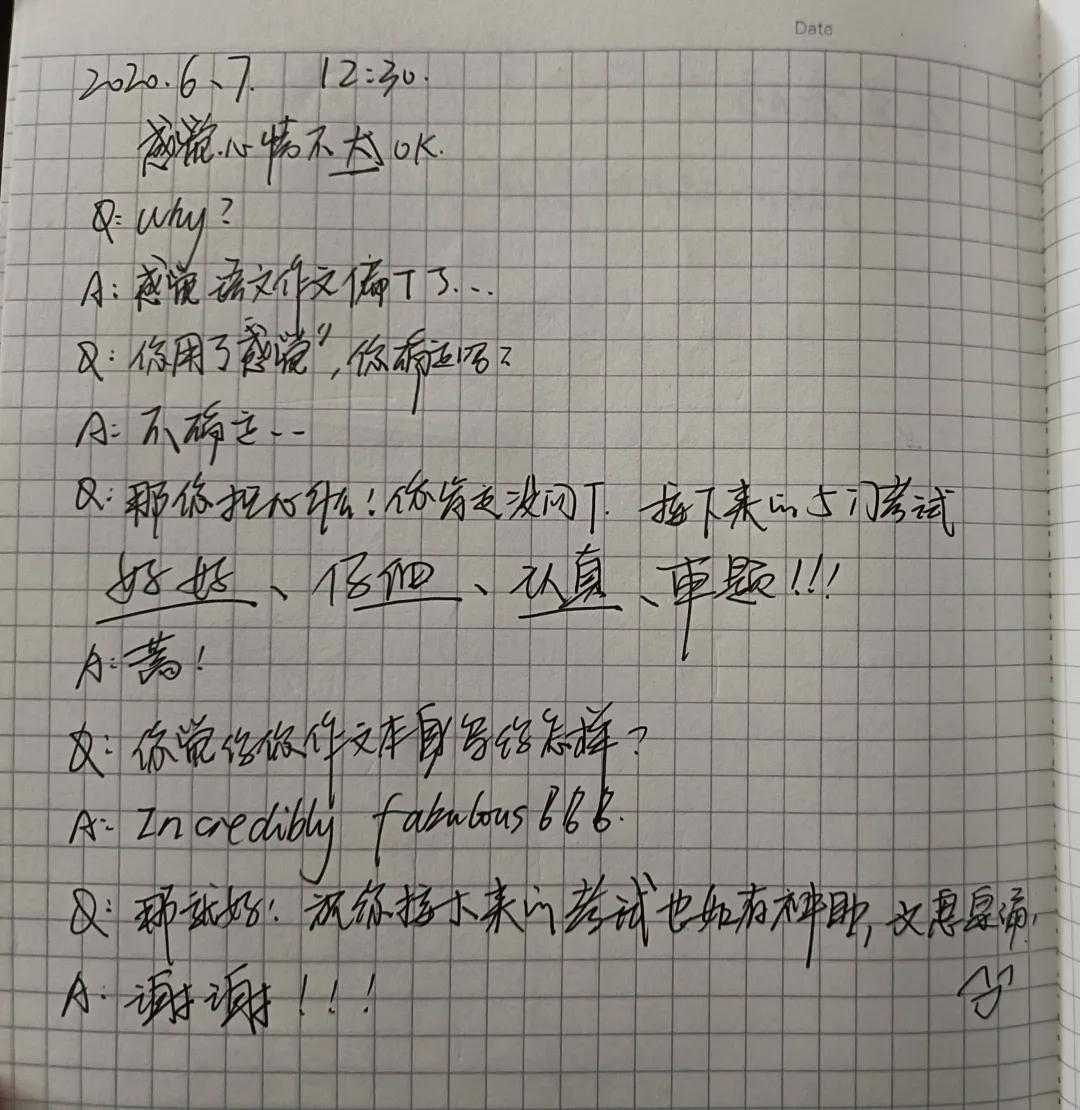 Date
2020.6、7. 12:30.
感觉心情不太OK.
Q: Why?
A: 感觉语文作文偏T了...
Q: 你用了"感觉", 你确定吗?
A: 不确定--
Q: 那你担心什么! 你肯定没问T. 接下来的5门考试
好好、仔细、认真、审题!!!
A:
Q: 你觉得你作文本身写得怎样?
A: Incredibly fabulous 666.
Q: 那就好! 祝你接下来的考试也如有神助, 文思泉涌.
A: 谢谢!!!